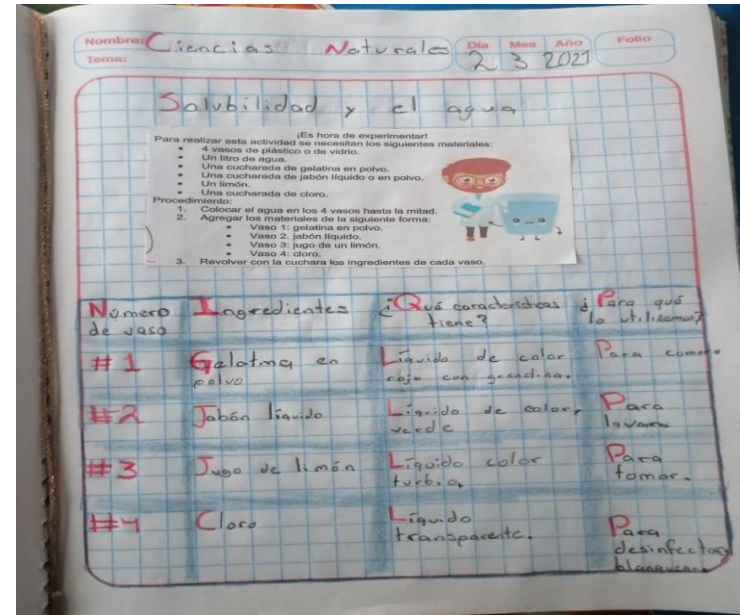 Nombre: Ciencias Naturales
Día Mes Año
2 3 2021
Folio
Tema:
Solubilidad y el agua
¡Es hora de experimentar!
Para realizar esta actividad se necesitan los siguientes materiales:
• 4 vasos de plástico o de vidrio.
• Un litro de agua.
• Una cucharada de gelatina en polvo.
• Una cucharada de jabón líquido o en polvo.
• Un limón.
• Una cucharada de cloro.
Procedimiento:
1. Colocar el agua en los 4 vasos hasta la mitad.
2. Agregar los materiales de la siguiente forma:
• Vaso 1: gelatina en polvo.
• Vaso 2. jabón líquido.
• Vaso 3: jugo de un limón.
• Vaso 4: cloro.
3. Revolver con la cuchara los ingredientes de cada vaso.
Número Ingredientes ¿Qué características ¿Para qué
de vaso tiene? lo utilizamos?
#1 Gelatina en Líquido de color Para comer
polvo rojo con
#2 Jabón líquido Líquido de color Para
verde lavar
#3 Jugo de limón Líquido color Para
turbio. tomar.
#4 Cloro Líquido Para
transparente. desinfectar y
blanquear